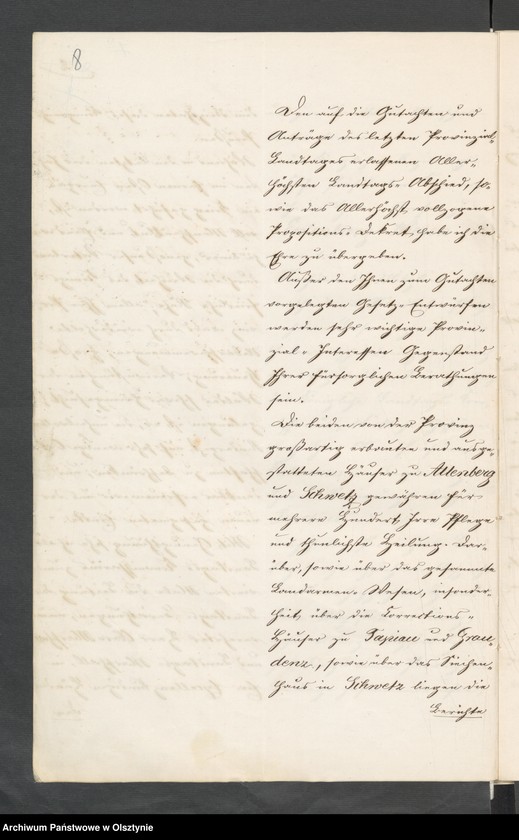 8
Den auf die Gutachten und
Anträge des letzten Provinzial-
Landtages erlassenen Aller-
höchsten Landtags-Abschied, so-
wie das Allerhöchst vollzogene
Propositions-Dekret, habe ich die
Ehre zu übergeben.
Außer den Ihnen zum Gutachten
vorgelegten Gesetz-Entwürfen
werden sehr wichtige Provin-
zial-Interessen Gegenstand
Ihrer fürsorglichen Berathungen
sein.
Die beiden von der Provinz
großartig erbauten und ausge-
statteten Häuser zu Allenberg
und Schwetz gewähren für
mehrere Hundert Irre Pflege
und thunlichste Heilung. Dar-
über, sowie über das gesammte
Landarmen-Wesen, insonder-
heit über die Correctione-
Häuser zu Tapiau und Grau-
denz, sowie über das Siechen-
haus in Schwetz liegen die
Berichte
Archiwum Państwowe w Olsztynie